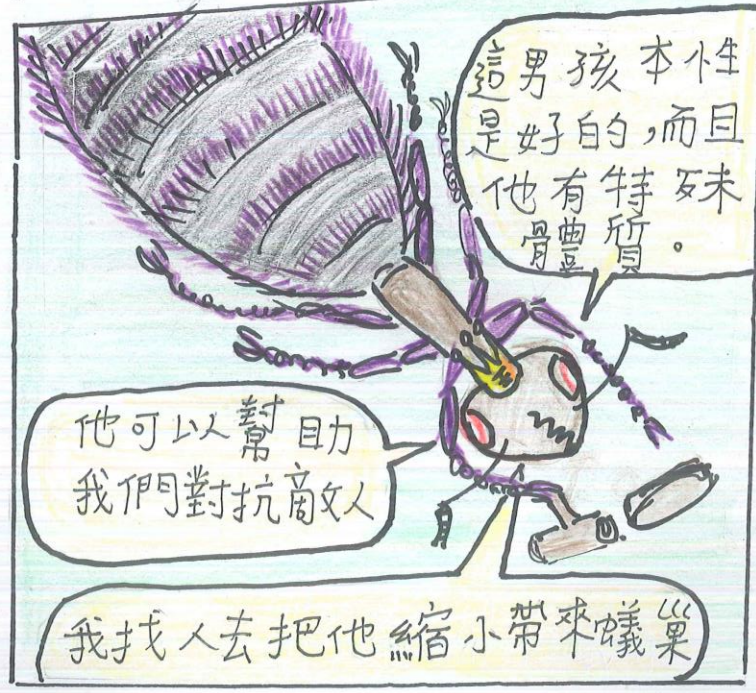 這男孩本性
是好的，而且
他有特殊
體質。
他可以幫助
我們對抗敵人
我找人去把他縮小帶來蟻巢